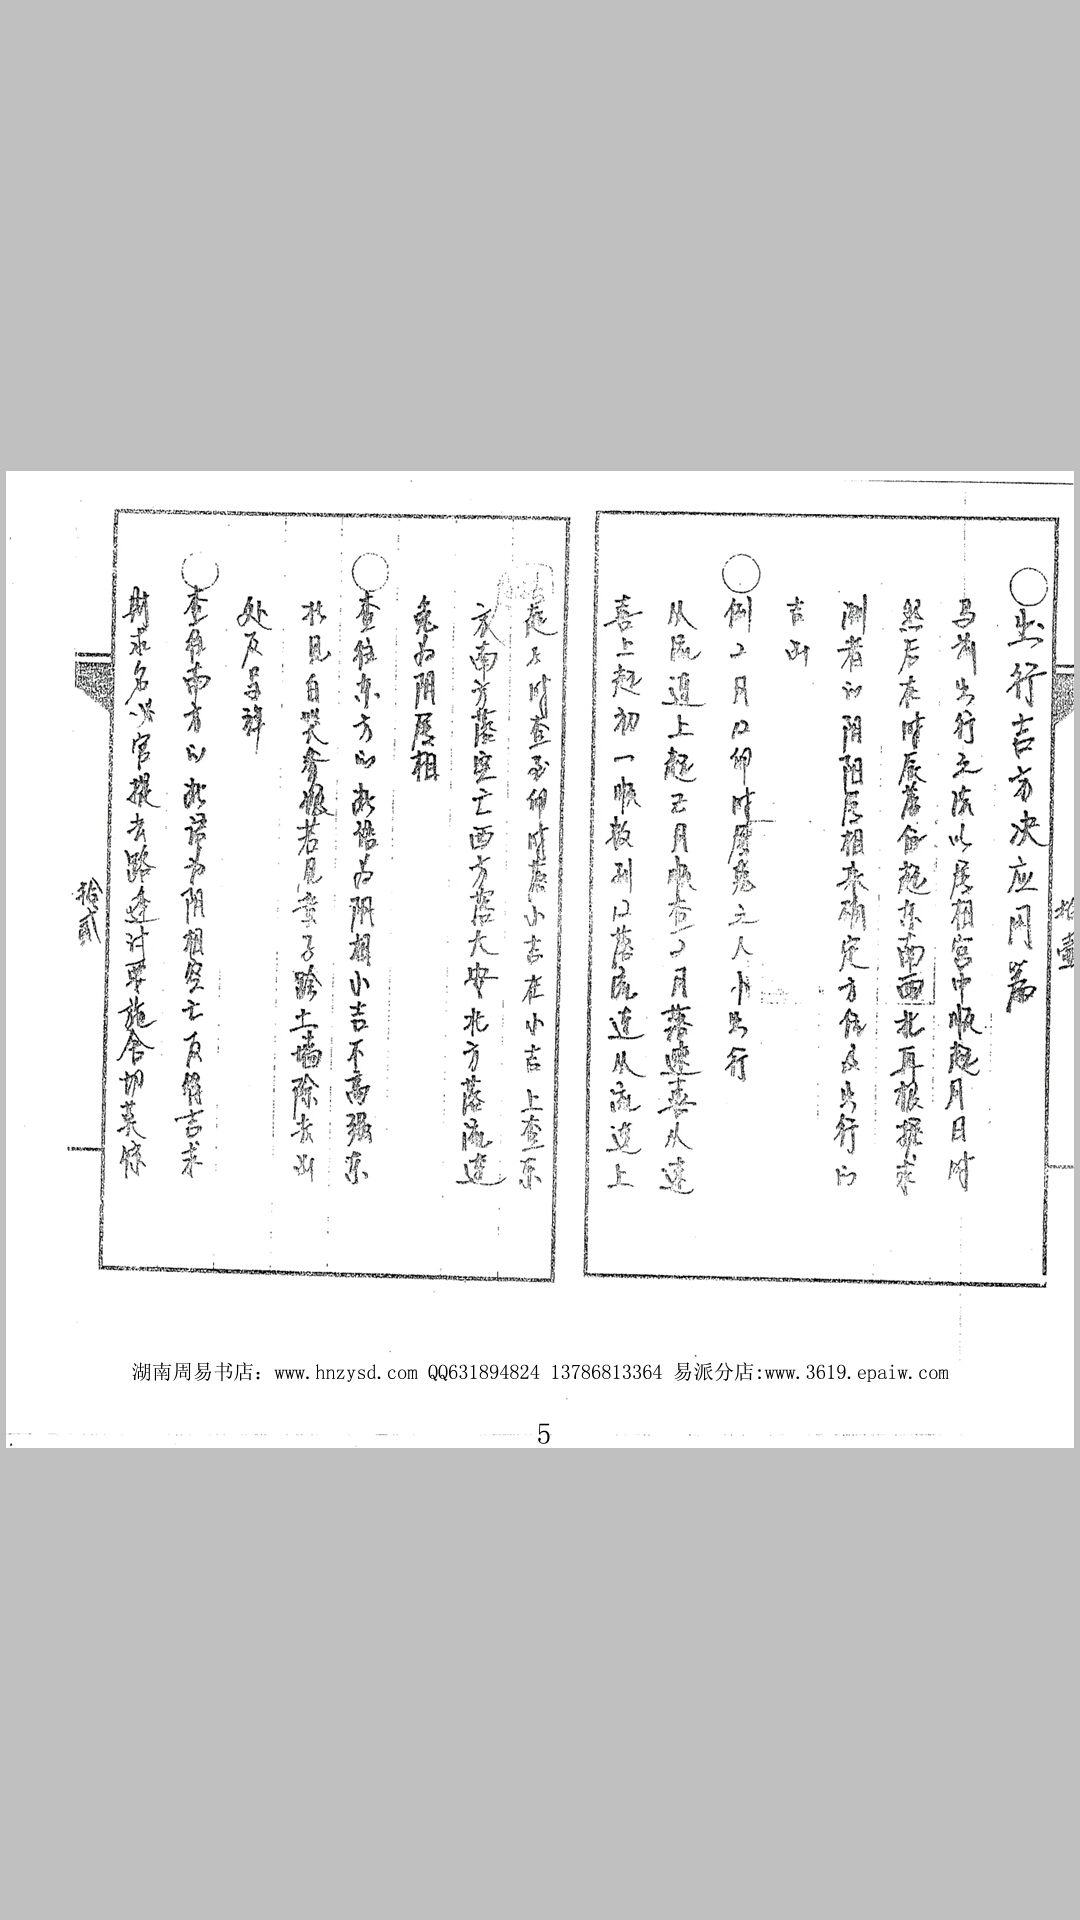 出行吉方决应用篇
马前出行之法以属相宫中顺起月日时
然后在时辰落位起东南西北再根据求
测者的阴阳属相来确定方位及出行的
吉凶
例2月12卯时属兔之人卜出行
从流连上起正月顺查2月落速喜从速
喜上起初一顺数到12落流连从流连上
拾壹
起子时查至卯时落小吉在小吉上查东
方南方落空亡西方落大安北方落流连
兔为阴属相
查往东方的断语为阴相小吉不高强东
见自哭爹娘若见童子 土墙除去凶
处反呈祥
查往南方的断语为阴相空亡反得吉求
财求名必官提去路逢讨要施舍切莫
拾贰
湖南周易书店：www.hnzysd.com QQ631894824 13786813364 易派分店:www.3619.epaiw.com
5